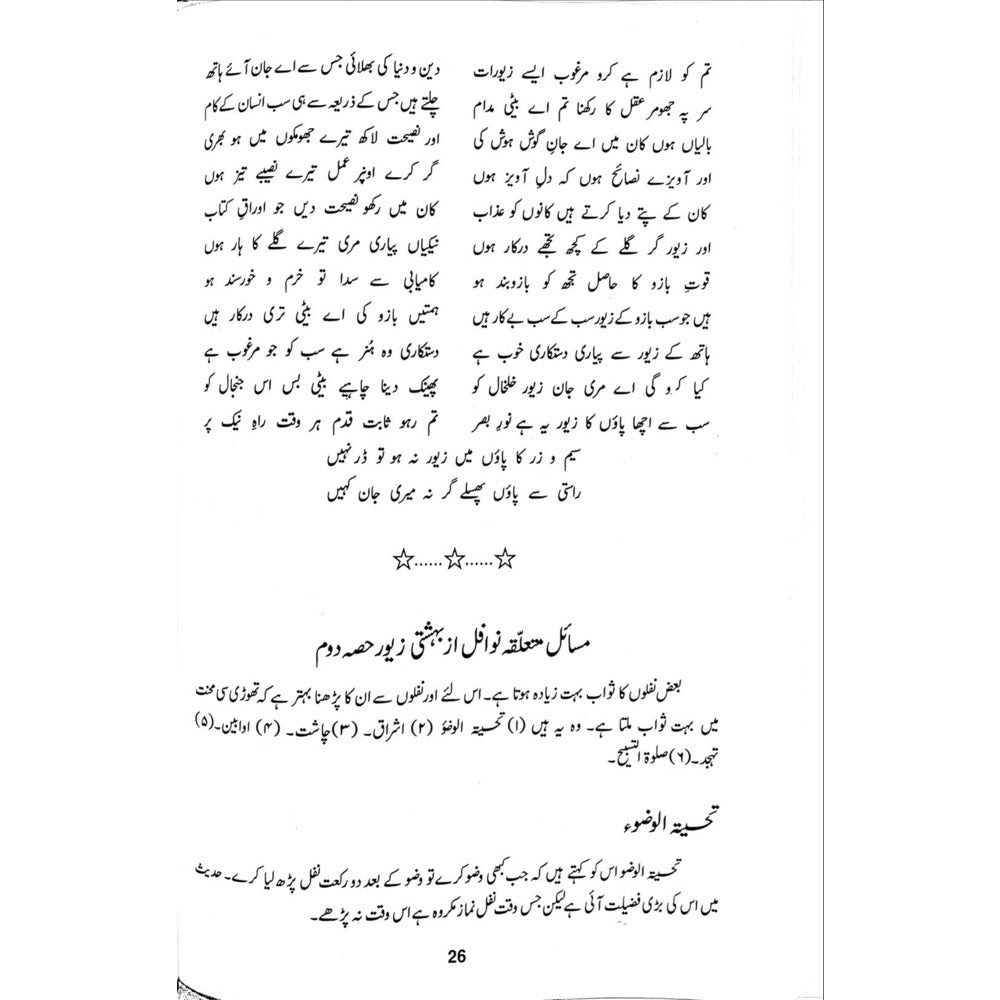 تم کو لازم ہے کرو مرغوب ایسے زیورات دین و دنیا کی بھلائی جس سے اے جان آئے ہاتھ
سر پہ جھومر عقل کا رکھنا تم اے بیٹی مدام چلتے ہیں جس کے ذریعہ سے ہی سب انسان کے کام
بالیاں ہوں کان میں اے جانِ گوش ہوش کی اور نصیحت لاکھ تیرے جھومکوں میں ہو بھری
اور آویزے نصائح ہوں کہ دلِ آویز ہوں گر کرے اونپر عمل تیرے نصیبے تیز ہوں
کان کے پتے دیا کرتے ہیں کانوں کو عذاب کان میں رکھو نصیحت دیں جو اوراقِ کتاب
اور زیور گر گلے کے کچھ تجھے درکار ہوں نیکیاں پیاری مری تیرے گلے کا ہار ہوں
قوتِ بازو کا حاصل تجھ کو بازوبند ہو کامیابی سے سدا تو خرم و خورسند ہو
ہیں جو سب بازو کے زیور سب کے سب بے کار ہیں ہمتیں بازو کی اے بیٹی تری درکار ہیں
ہاتھ کے زیور سے پیاری دستکاری خوب ہے دستکاری وہ ہُنر ہے سب کو جو مرغوب ہے
کیا کرو گی اے مری جان زیورِ خلخال کو پھینک دینا چاہیے بیٹی بس اس جنجال کو
سب سے اچھا پاؤں کا زیور یہ ہے نورِ بصر تم رہو ثابت قدم ہر وقت راہِ نیک پر
سیم و زر کا پاؤں میں زیور نہ ہو تو ڈر نہیں
راستی سے پاؤں پھسلے گر نہ میری جان کہیں
☆......☆......☆
مسائل متعلّقہ نوافل از بہشتی زیور حصہ دوم
بعض نفلوں کا ثواب بہت زیادہ ہوتا ہے۔ اس لئے اور نفلوں سے ان کا پڑھنا بہتر ہے کہ تھوڑی سی محنت
میں بہت ثواب ملتا ہے۔ وہ یہ ہیں (۱) تحیتہ الوضؤ (۲) اشراق۔ (۳) چاشت۔ (۴) اوابین۔ (۵)
تہجد۔ (۶) صلوۃ التسبیح۔
تحیتہ الوضوء
تحیتہ الوضو اس کو کہتے ہیں کہ جب کبھی وضو کرے تو وضو کے بعد دو رکعت نفل پڑھ لیا کرے۔ حدیث
میں اس کی بڑی فضیلت آئی ہے لیکن جس وقت نفل نماز مکروہ ہے اس وقت نہ پڑھے۔
26